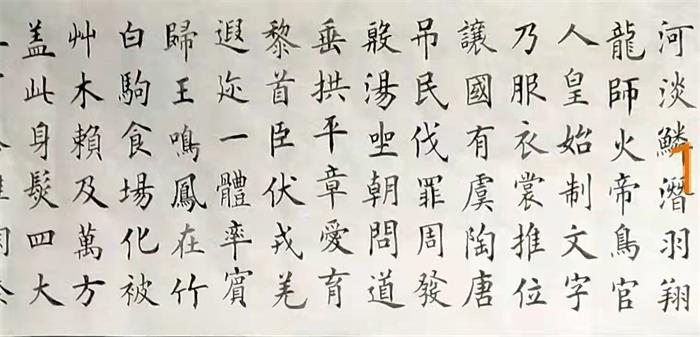 河淡鱗潛羽翔
龍師火帝鳥官
人皇始制文字
乃服衣裳推位
讓國有虞陶唐
吊民伐罪周發
殷湯坐朝問道
垂拱平章愛育
黎首臣伏戎羌
遐迩一體率賓
歸王鳴鳳在竹
白駒食場化被
艸木賴及萬方
盖此身髮四大